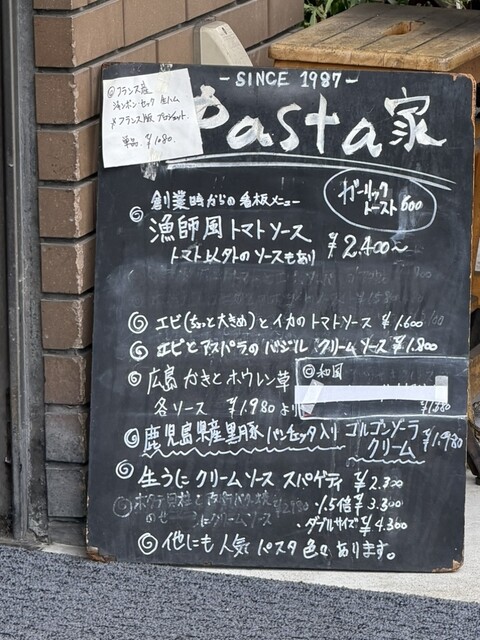 ◎フランス産
ジャンボン・セック 生ハム
※フランス版 プロシュート
単品 ¥1080
-SINCE 1987-
Pasta家
ガーリック
トースト 600
創業時からの看板メニュー
漁師風トマトソース ¥2.400~
トマト以外のソースもあり
エビ(ちょっと大きめ)とイカのトマトソース ¥1.600
エビとアスパラのバジル クリームソース ¥1.800
広島かきとホウレン草
各ソース ¥1.980より
◎和風
¥1.880
鹿児島県産黒豚パンチェッタ入り ゴルゴンゾーラ
クリーム ¥1980
生うにクリームソース スパゲティ ¥2.300
・1.5倍 ¥3.300
・ダブルサイズ ¥4.300
ホタテ貝柱と
のせ うにクリームソース
他にも人気パスタ色々あります。